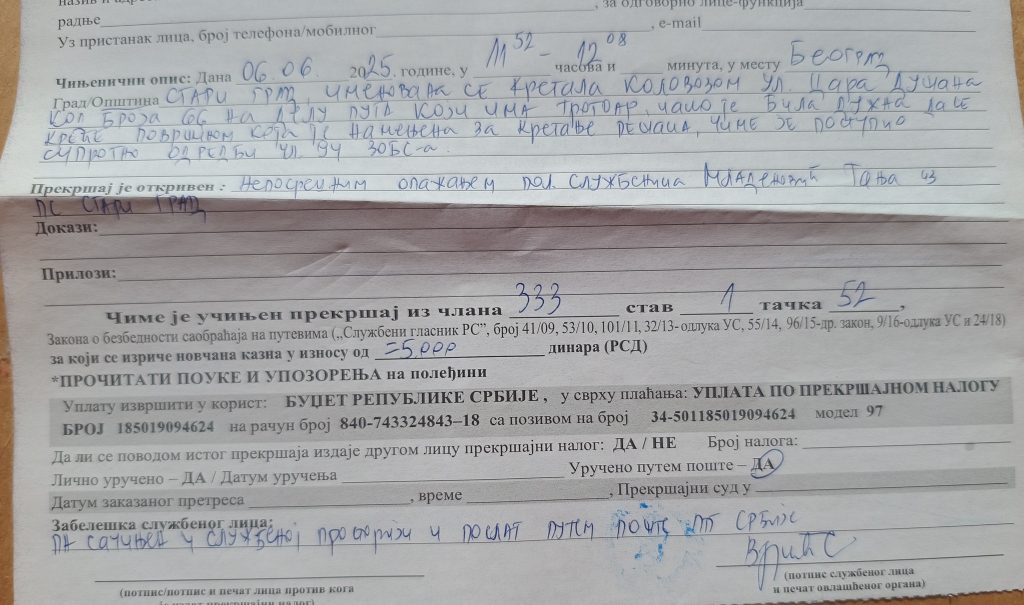 , за одговорно лице-функција
радње
Уз пристанак лица, број телефона/мобилног , e-mail
Чињенични опис: Дана 06.06. 2025. године, у 11 52 - 12 08 часова и минута, у месту БЕОГРАД
Град/Општина СТАРИ ГРАД, ИМЕНОВАНА СЕ КРЕТАЛА КОЛОВОЗОМ УЛ. ЦАРА ДУШАНА
КОД БРОЈА 66 НА ДЕЛУ ПУТА КОЈИ ИМА ТРОТОАР, ИАКО ЈЕ БИЛА ДУЖНА ДА СЕ
КРЕЋЕ ПОВРШИНОМ КОЈА ЈЕ НАМЕЊЕНА ЗА КРЕТАЊЕ ПЕШАКА, ЧИМЕ ЈЕ ПОСТУПИО
СУПРОТНО ОДРЕДБИ ЧЛ. 94 ЗОБС-а.
Прекршај је откривен : Непосредним опажањем пол. службеница Младеновић Тања из
ПС СТАРИ ГРАД
Докази:
Прилози:
Чиме је учињен прекршај из члана 333 став 1 тачка 52,
Закона о безбедности саобраћаја на путевима („Службени гласник РС”, број 41/09, 53/10, 101/11, 32/13- одлука УС, 55/14, 96/15-др. закон, 9/16-одлука УС и 24/18)
за који се изриче новчана казна у износу од =5.000 динара (РСД)
*ПРОЧИТАТИ ПОУКЕ И УПОЗОРЕЊА на полеђини
Уплату извршити у корист: БУЏЕТ РЕПУБЛИКЕ СРБИЈЕ , у сврху плаћања: УПЛАТА ПО ПРЕКРШАЈНОМ НАЛОГУ
БРОЈ 185019094624 на рачун број 840-743324843–18 са позивом на број 34-501185019094624 модел 97
Да ли се поводом истог прекршаја издаје другом лицу прекршајни налог: ДА / НЕ Број налога:
Лично уручено – ДА / Датум уручења Уручено путем поште – ДА
Датум заказаног претреса , време , Прекршајни суд у
Забелешка службеног лица:
ПН САЧИЊЕН У СЛУЖБЕНОЈ ПРОСТОРИЈИ И ПОСЛАТ ПУТЕМ ПОШТЕ ПТТ СРБИЈЕ
(потпис/потпис и печат лица против кога (потпис службеног лица
и печат овлашћеног органа)